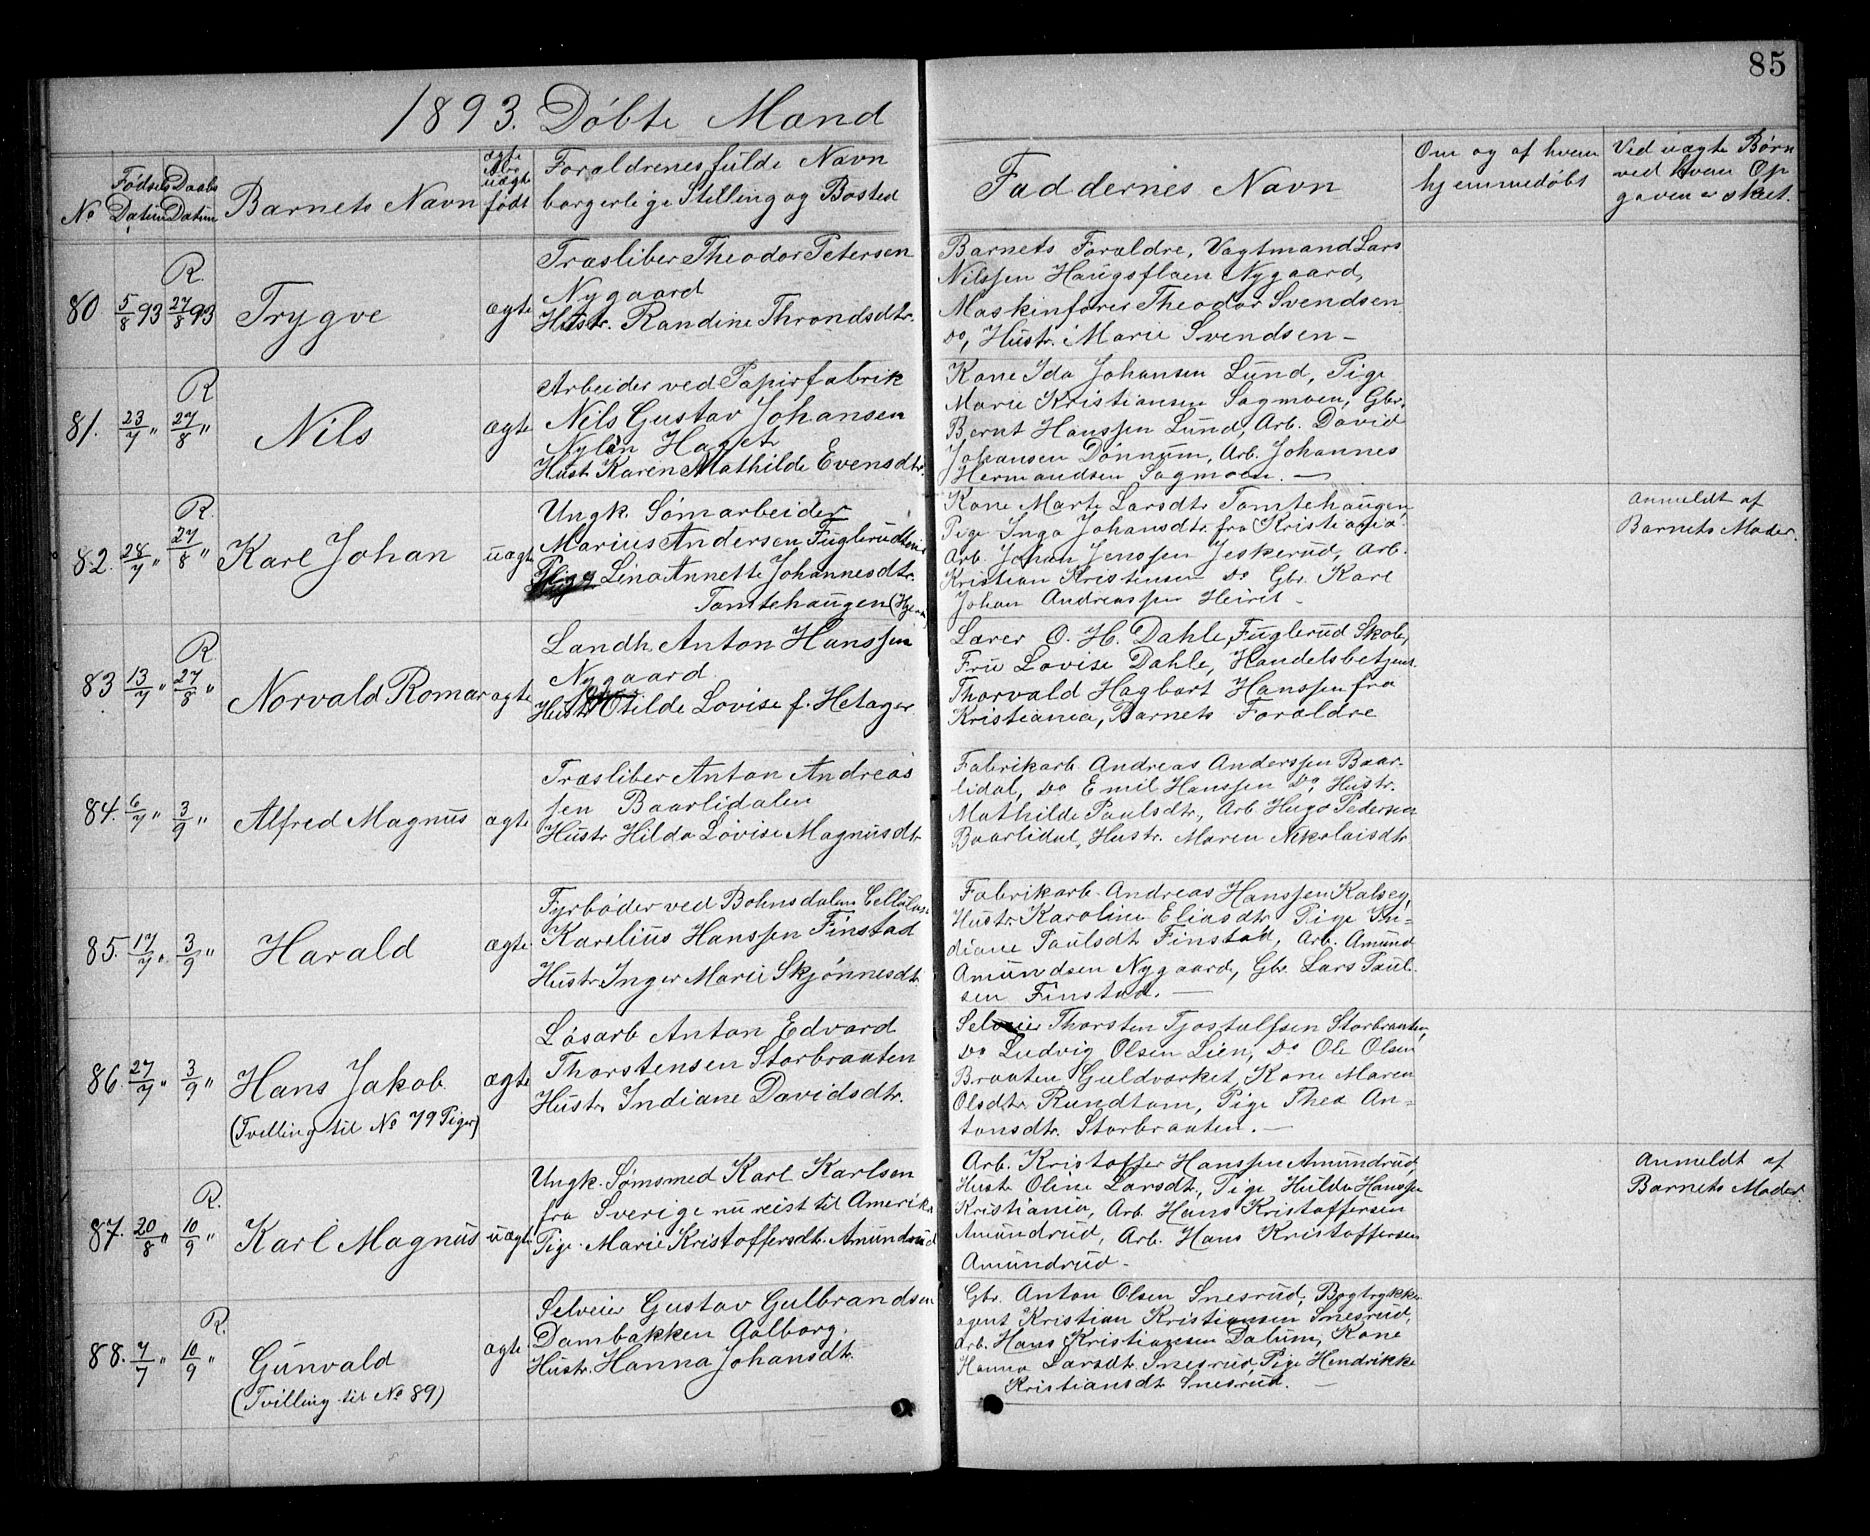 85
1893. Döbte Mænd
No
Födsels Datum
Daabs Datum
Barnets Navn
ægte eller uægte födt
Forældrenes fulde Navn
borgerlige Stilling og Bosted
Faddernes Navn
Om og af hvem
hjemmedöbt
Ved uægte Börn
ved hvem Op
gaven er skeet.
80 5/8 93 R. 27/8 93 Trygve ægte
Træsliber Theodor Petersen
Nygaard
Hustr. Randine Throndsdtr.
Barnets Forældre, Vagtmand Lars
Nilssen Haugsflaen Nygaard,
Maskinförer Theodor Svendsen
Do, Hustr. Marie Svendsen –
81. 23/7 " R 27/8 " Nils ægte
Arbeider ved Papirfabrik
Nils Gustav Johansen
Nylén Haget
Hust. Karen Mathilde Evensdtr.
Kone Ida Johansen Lund, Pige
Marie Kristiansen Sagmoen, Gbr.
Bernt Hanssen Lund, Arb. David
Johansen Dönnum, Arb. Johannes
Hermandsen Sagmoen. —
82. 28/7 " R. 27/8 " Karl Johan uægte
Ungk. Sömarbeider
Marius Andersen Fuglerud
Pige Lina Annette Johannesdtr.
Tomtehaugen
Kone Marte Larsdtr Tomtehaugen
Pige Inga Johansdtr. fra Kristiania
Arb. Johan Jenssen Jeskerud, Arb.
Kristian Kristensen Do Gbr. Karl
Johan Andreassen Heiret –
anmeldt af
Barnets Moder.
83 13/7 " R. 27/8 " Norvald Romar ægte
Landh. Anton Hanssen
Nygaard
Hustr Otilde Lovise f. Hetager
Lærer O. H. Dahle, Fuglerud Skole,
Fru Lovise Dahle, Handelsbetjent
Thorvald Hagbart Hanssen fra
Kristiania, Barnets Forældre
84. 6/7 " 3/9 " Alfred Magnus ægte
Træsliber Anton Andreas
sen Baarlidalen
Hustr Hilda Lovise Magnusdtr
Fabrikarb Andreas Anderssen Baar-
lidal, Do Emil Hanssen Do, Hustr.
Mathilde Paulsdtr, Arb Hugo Pedersen
Baarlidal, Hustr. Maren Nikolaisdtr
85. 17/7 " 3/9 " Harald ægte
Fyrböder ved Bohnsdalens Cellulose
Karelius Hanssen Finstad
Hustr. Inger Marie Skjönnesdtr.
Fabrikarb. Andreas Hanssen Kalsey,
Hustr. Karoline Eliasdtr Pige In-
diane Paulsdt Finstad, Arb. Amund
Amundsen Nygaard, Gbr. Lars Paul-
sen Finstad. —
86. 27/7 " 3/9 " Hans Jakob. ægte
(Tvilling til No 79 Piger)
Lösarb Anton Edvard
Thorstensen Storbraaten
Hustr Indiane Davidsdtr.
Selveier Thorsten Tjostulfsen Storbraaten,
Do Ludvig Olsen Lien, Do Ole Olsen
Braaten Guldværket, Kone Maren
Olsdtr Rundtom, Pige Thea An-
tonsdtr. Storbraaten. —
87. 20/8 " R. 10/9 " Karl Magnus uægte
Ungk. Sömsmed Karl Karlsen
fra Sverige nu reist til Amerika
Pige Marie Kristoffersdt. Amundrud
Arb. Kristoffer Hanssen Amundrud,
Hustr Oline Larsdt, Pige Hulda Hanssen
Kristiania, Arb. Hans Kristoffersen
Amundrud, Arb. Hans Kristoffersen
Amundrud –
Anmeldt af
Barnets Moder.
88. 7/7 " R. 10/9 " Gunvald ægte
(Tvilling til No 89)
Selveier Gustav Gulbrandsen
Dambakken Aalborg.
Hustr. Hanna Johansdt.
Gbr. Anton Olsen Snesrud, Bogtrykker
agent Kristian Kristiansen Snesrud,
Arb. Hans Kristiansen Dalum, Kone
Hanna Larsdt. Snesrud, Pige Hendrikke
Kristiansdt Snesrud. —